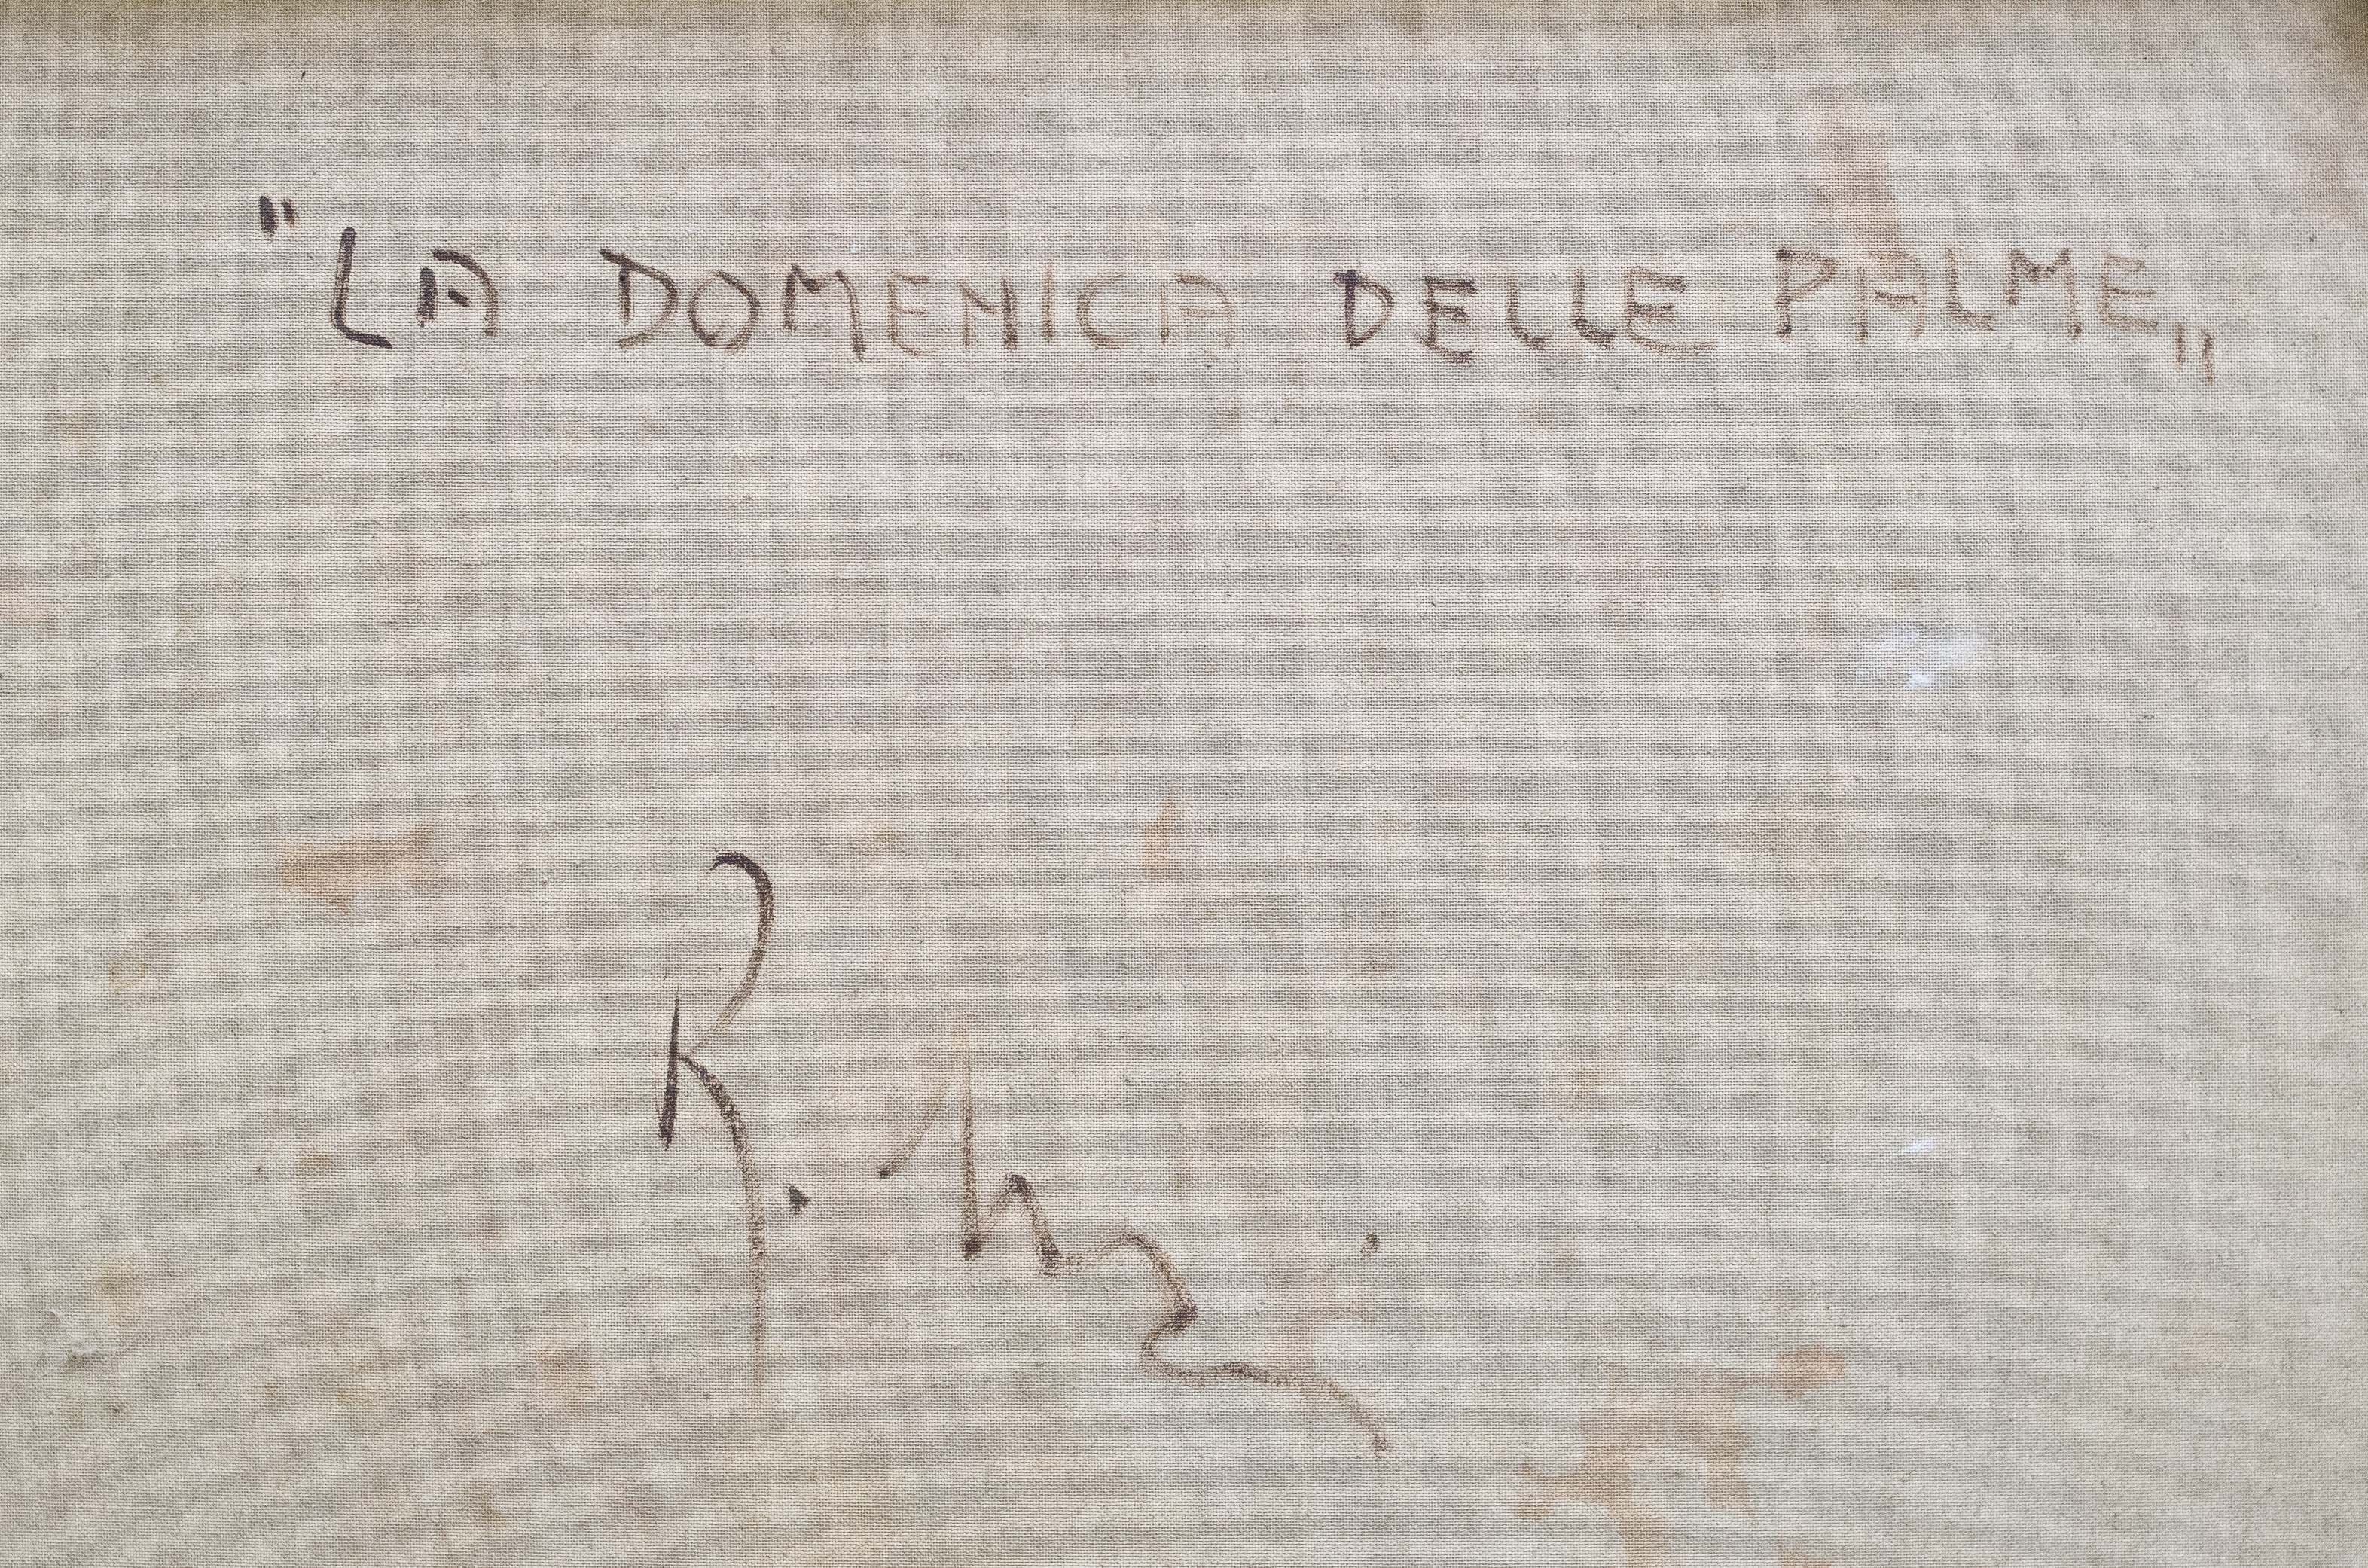 "LA DOMENICA DELLE PALME„
R.